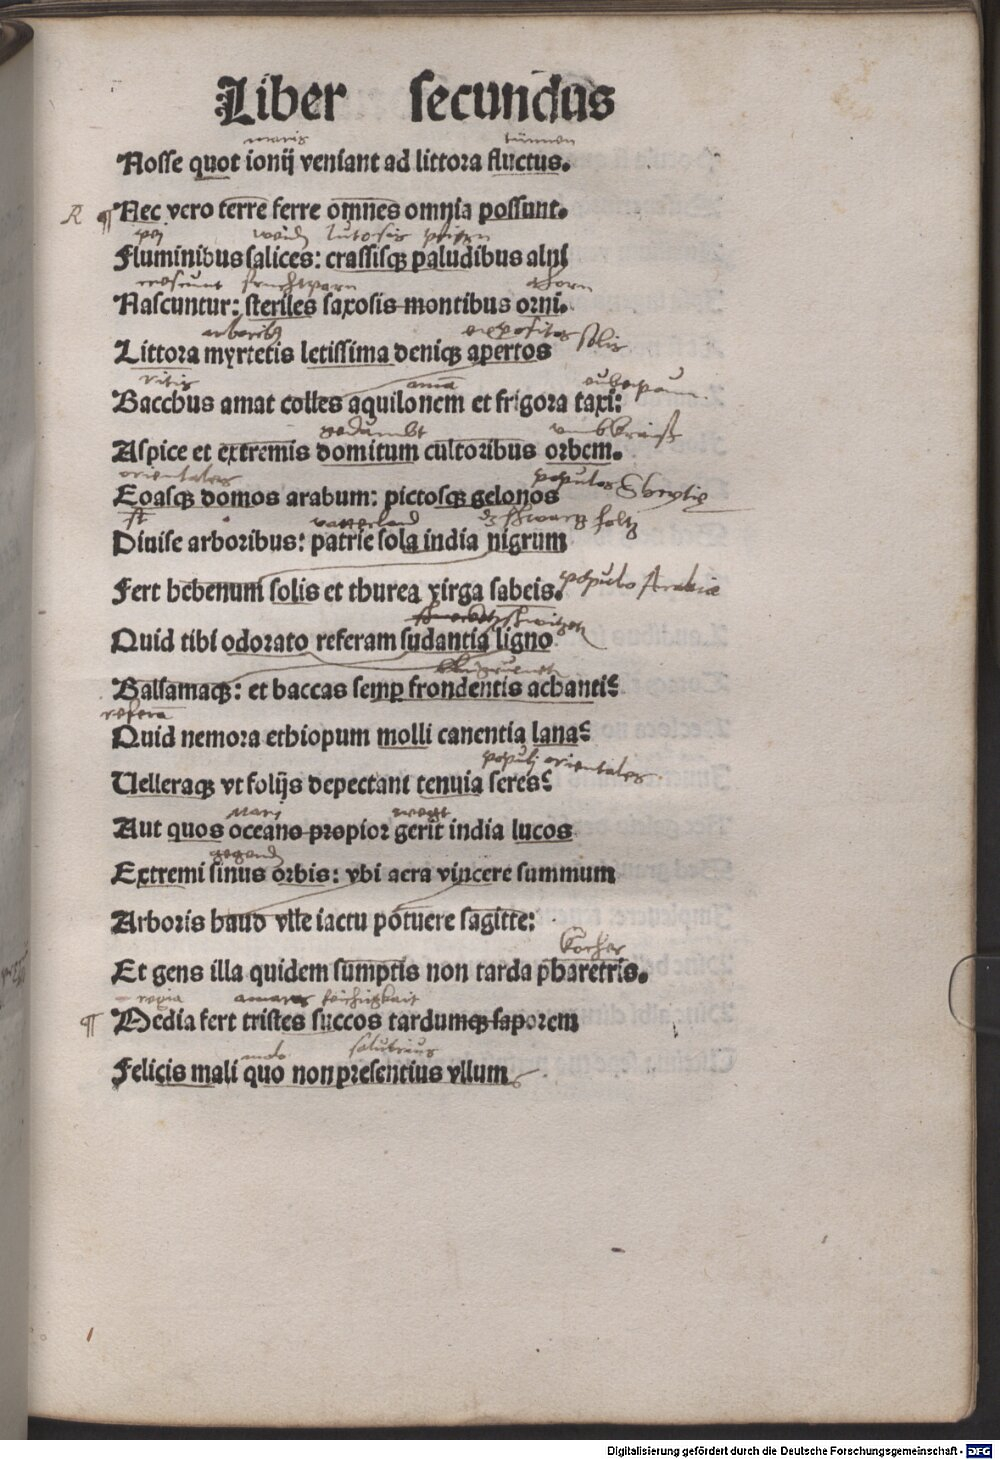 Liber secundus
maris
Nosse quot ionij veniant ad littora fluctus.
R ¶ Nec vero terre ferre omnes omnia possunt.
weid lutosis
Fluminibus salices: crassisqꝫ paludibus alni
Nascuntur: steriles saxosis montibus orni.
expositos solis
Littora myrtetis letissima deniqꝫ apertos
vitis
Bacchus amat colles aquilonem et frigora taxi:
Aspice et extremis domitum cultoribus orbem.
orientales populos
Eoasqꝫ domos arabum: pictosqꝫ gelonos
vatterland schwartz holtz
Diuise arboribus: patrie sola india nigrum
populo Arabie
Fert hebenum solis et thurea virga sabeis.
Quid tibi odorato referam sudantia ligno
Balsamaqꝫ: et baccas semꝑ frondentis achanti?
refera
Quid nemora ethiopum molli canentia lana?
populi orientales
Velleraqꝫ vt folijs depectant tenuia seres?
mari
Aut quos oceano propior gerit india lucos
gegend
Extremi sinus orbis: vbi aera vincere summum
Arboris haud vlle iactu potuere sagitte:
kocher
Et gens illa quidem sumptis non tarda pharetris.
regia amaros
¶ Media fert tristes succos tardumqꝫ saporem
malo
Felicis mali quo non presentius vllum
Digitalisierung gefördert durch die Deutsche Forschungsgemeinschaft - DFG